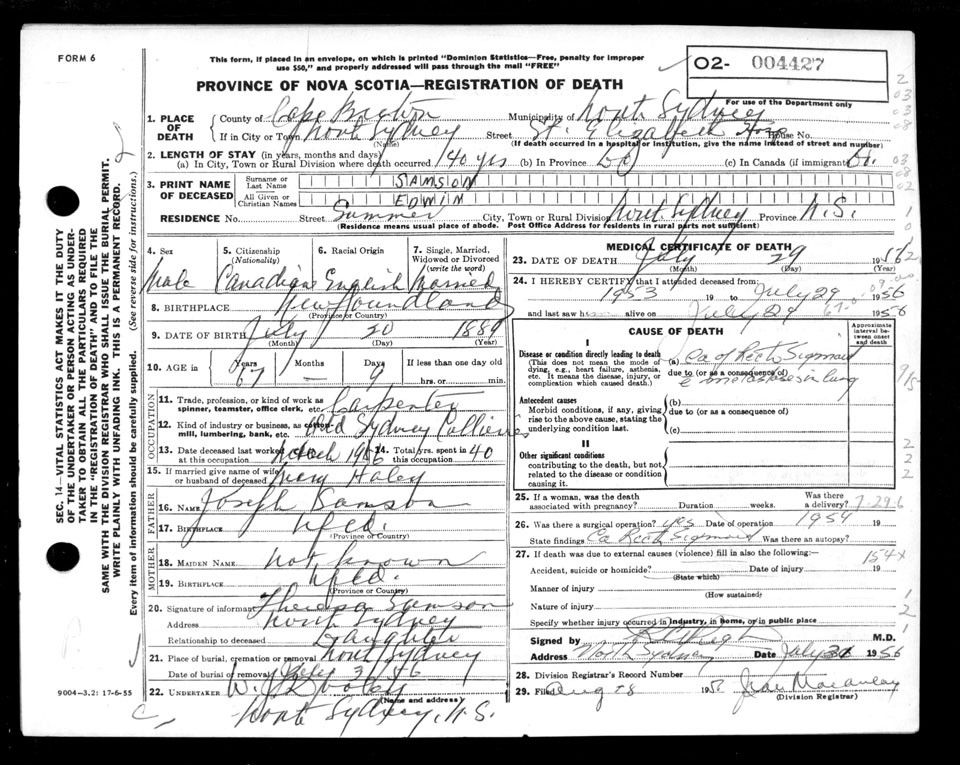 FORM 6
This form, if placed in an envelope, on which is printed "Dominion Statistics—Free, penalty for improper
use $50," and properly addressed will pass through the mail "FREE"
PROVINCE OF NOVA SCOTIA—REGISTRATION OF DEATH
02- 004427
For use of the Department only
1. PLACE OF DEATH County of Cape Breton Municipality of North Sydney
If in City or Town North Sydney (Name) Street St. Elizabeth Hosp House No.
(If death occurred in a hospital or institution, give the name instead of street and number)
2. LENGTH OF STAY (in years, months and days)
(a) In City, Town or Rural Division where death occurred 40 yrs (b) In Province (c) In Canada (if immigrant)
3. PRINT NAME OF DECEASED Surname or Last Name SAMSON
All Given or Christian Names EDWIN
RESIDENCE No. Street Summer City, Town or Rural Division North Sydney Province N.S.
(Residence means usual place of abode. Post Office Address for residents in rural parts not sufficient)
4. Sex Male
5. Citizenship (Nationality) Canadian
6. Racial Origin English
7. Single, Married, Widowed or Divorced (write the word) Married
8. BIRTHPLACE Newfoundland
(Province or Country)
9. DATE OF BIRTH July 20 1889
(Month) (Day) (Year)
10. AGE in Years 67 Months — Days 9 If less than one day old
hrs. or min.
OCCUPATION
11. Trade, profession, or kind of work as
spinner, teamster, office clerk, etc. Carpenter
12. Kind of industry or business, as cotton-
mill, lumbering, bank, etc. Old Sydney Collieries
13. Date deceased last worked at this occupation March 1956 14. Total yrs. spent in this occupation 40
15. If married give name of wife
or husband of deceased Mary Haley
FATHER
16. NAME Joseph Samson
17. BIRTHPLACE Nfld.
(Province or Country)
MOTHER
18. MAIDEN NAME not known
19. BIRTHPLACE Nfld.
(Province or Country)
20. Signature of informant Theresa Samson
Address North Sydney
Relationship to deceased Daughter
21. Place of burial, cremation or removal North Sydney
Date of burial or removal
22. UNDERTAKER W. J. Dooley
(Name and address)
North Sydney, N.S.
9004-3.2: 17-6-55
SEC. 14—VITAL STATISTICS ACT MAKES IT THE DUTY
OF THE UNDERTAKER OR PERSON ACTING AS UNDER-
TAKER TO OBTAIN ALL THE PARTICULARS REQUIRED
IN THE "REGISTRATION OF DEATH" AND TO FILE THE
SAME WITH THE DIVISION REGISTRAR WHO SHALL ISSUE THE BURIAL PERMIT.
WRITE PLAINLY WITH UNFADING INK. THIS IS A PERMANENT RECORD.
Every item of information should be carefully supplied. (See reverse side for instructions.)
MEDICAL CERTIFICATE OF DEATH
23. DATE OF DEATH July 29 1956
(Month) (Day) (Year)
24. I HEREBY CERTIFY that I attended deceased from:
1953 19 to July 29 1956
and last saw h alive on July 29 1956
CAUSE OF DEATH
Approximate interval between onset and death
I
Disease or condition directly leading to death
(This does not mean the mode of
dying, e.g., heart failure, asthenia,
etc. It means the disease, injury, or
complication which caused death.)
(a) Ca of Recto Sigmoid
due to (or as a consequence of)
c metastases in lung
Antecedent causes
Morbid conditions, if any, giving
rise to the above cause, stating the
underlying condition last.
(b)
due to (or as a consequence of)
(c)
II
Other significant conditions
contributing to the death, but not
related to the disease or condition
causing it.
25. If a woman, was the death
associated with pregnancy? Duration weeks. Was there a delivery? 7-29-6
26. Was there a surgical operation? yes Date of operation 1954 19
State findings Ca Recto Sigmoid Was there an autopsy?
27. If death was due to external causes (violence) fill in also the following:— 154x
Accident, suicide or homicide? Date of injury 19
(State which)
Manner of injury
(How sustained)
Nature of injury
Specify whether injury occurred in industry, in home, or in public place
Signed by M.D.
Address North Sydney Date July 31 1956
28. Division Registrar's Record Number
29. Filed Aug 8 1956 Jean Macaulay
(Division Registrar)